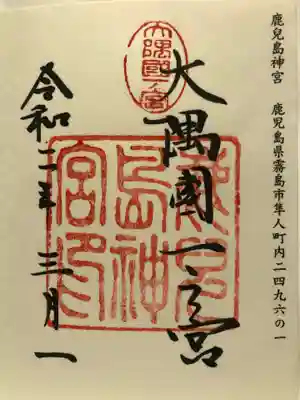 鹿兒島神宮　鹿児島県霧島市隼人町内二四九六の一
大隅國一ノ宮
大隅國一之宮
鹿兒
島神
宮印
令和二年 三月一